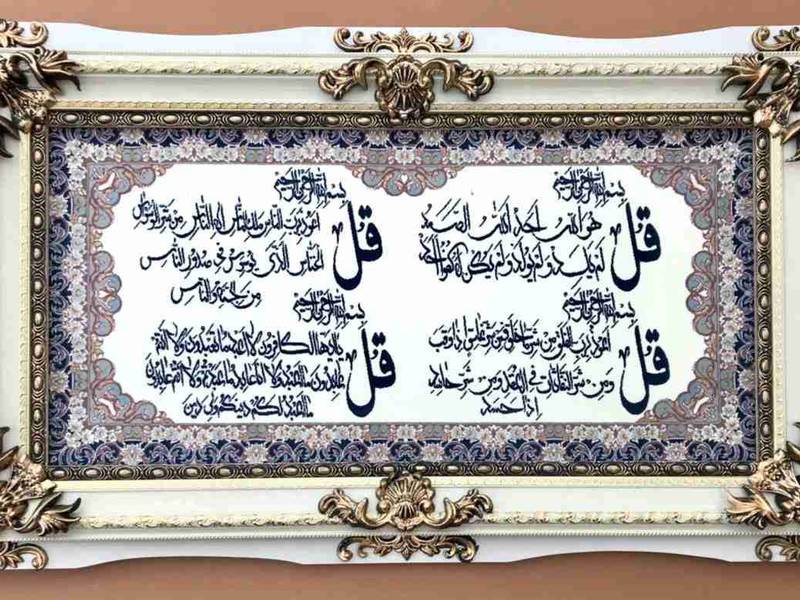 بسم الله الرحمن الرحيم
قل هو الله احد الله الصمد
لم يلد و لم يولد و لم يكن له كفوا احد
بسم الله الرحمن الرحيم
قل اعوذ برب الفلق من شر ما خلق و من شر غاسق اذا وقب
و من شر النفاثات في العقد و من شر حاسد
اذا حسد
بسم الله الرحمن الرحيم
قل اعوذ برب الناس ملك الناس اله الناس من شر الوسواس
الخناس الذي يوسوس في صدور الناس
من الجنة و الناس
بسم الله الرحمن الرحيم
قل يا ايها الكافرون لا اعبد ما تعبدون و لا انتم
عابدون ما اعبد و لا انا عابد ما عبدتم و لا انتم عابدون
ما اعبد لكم دينكم ولي دين